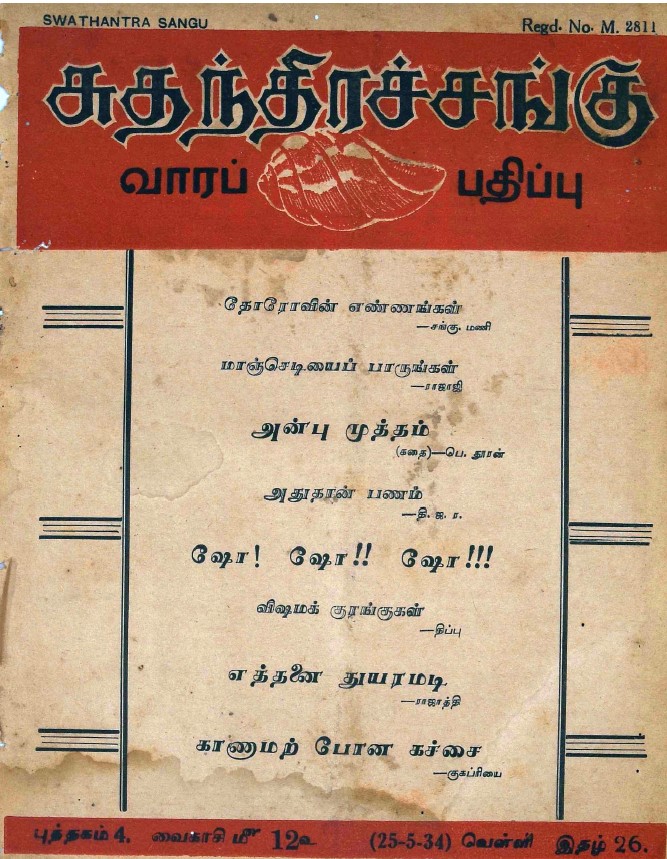 SWATHANTRA SANGU Regd. No. M. 2811
சுதந்திரச்சங்கு
வாரப் பதிப்பு
தோரோவின் எண்ணங்கள்
—சங்கு. மணி
மாஞ்செடியைப் பாருங்கள்
—ராஜாஜி
அன்பு முத்தம்
(கதை)—பெ. தூரன்
அதுதான் பணம்
—தி. ஜ. ர.
ஷோ! ஷோ!! ஷோ!!!
விஷமக் குரங்குகள்
—திப்பு
எத்தனை துயரமடி
—ராஜாத்தி
காணாமற் போன கச்சை
—குகப்ரியை
புத்தகம் 4. வைகாசி மீ 12௨ (25-5-34) வெள்ளி இதழ் 26.